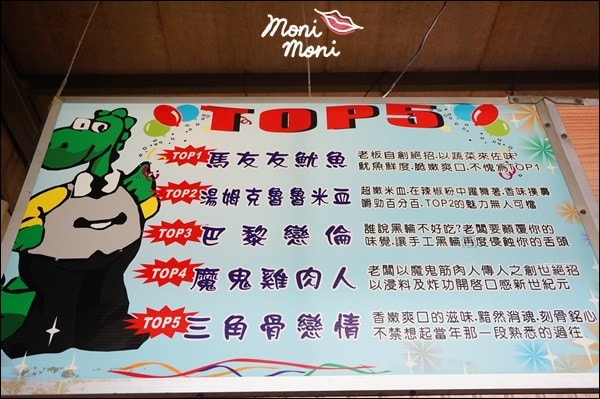 Moni
Moni
TOP5
TOP1 馬友友魷魚
老板自創絕招.以蔬菜來佐味
魷魚鮮度.脆嫩爽口.不愧為TOP1
TOP2 湯姆克魯魯米血
超嫩米血.在辣椒粉中躍舞著.香味撲鼻
嚼勁百分百.TOP2的魅力無人可檔
TOP3 巴黎戀倫
誰說黑輪不好吃?老闆要顛覆你的
味覺.讓手工黑輪再度侵蝕你的舌頭
TOP4 魔鬼雞肉人
老闆以魔鬼筋肉人傳人之創世絕招
以浸料及炸功開啓口感新世紀元
TOP5 三角骨戀情
香嫩爽口的滋味.黯然消魂.刻骨銘心
不禁想起當年那一段熟悉的過往